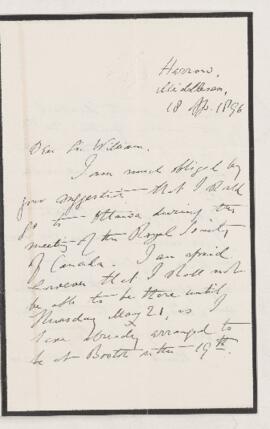 Harrow,
Middlesex,
18 Ap. 1896
Dear Sir William,
I am much obliged by
your suggestion that I should
go to Ottawa during the
meeting of the Royal Society
of Canada. I am afraid
however that I shall not
be able to be there until
Thursday May 21, as I
have already arranged to
be at Boston on the 19th.